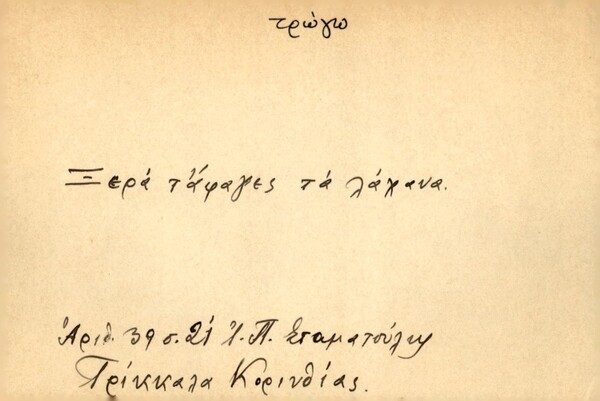 τρώγω
Ξερά τἄφαγες τά λάχανα.
Ἀριθ. 39 σ. 21 Ἰ. Π. Σταματούλη
Τρίκκαλα Κορινθίας.